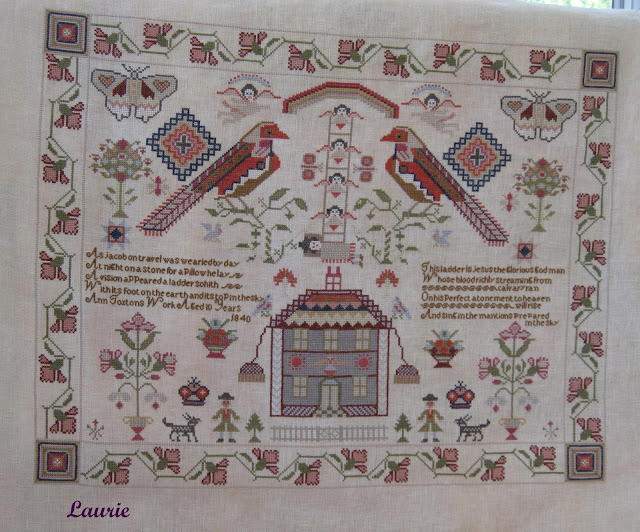 As jacob on travel was wearied by day
At night on a stone for a Pillow he lay
A vision appeared a ladder so hith
With its foot on the earth and its top in the sky
Ann Foxtons Work Aged 10 Years
1840
This ladder is Jesus the Glorious God man
Whose blood richly streaming from
calvary ran
On his Perfect atonement to heaven
will rise
And sing in the mantions Prepared
in the sky
Laurie